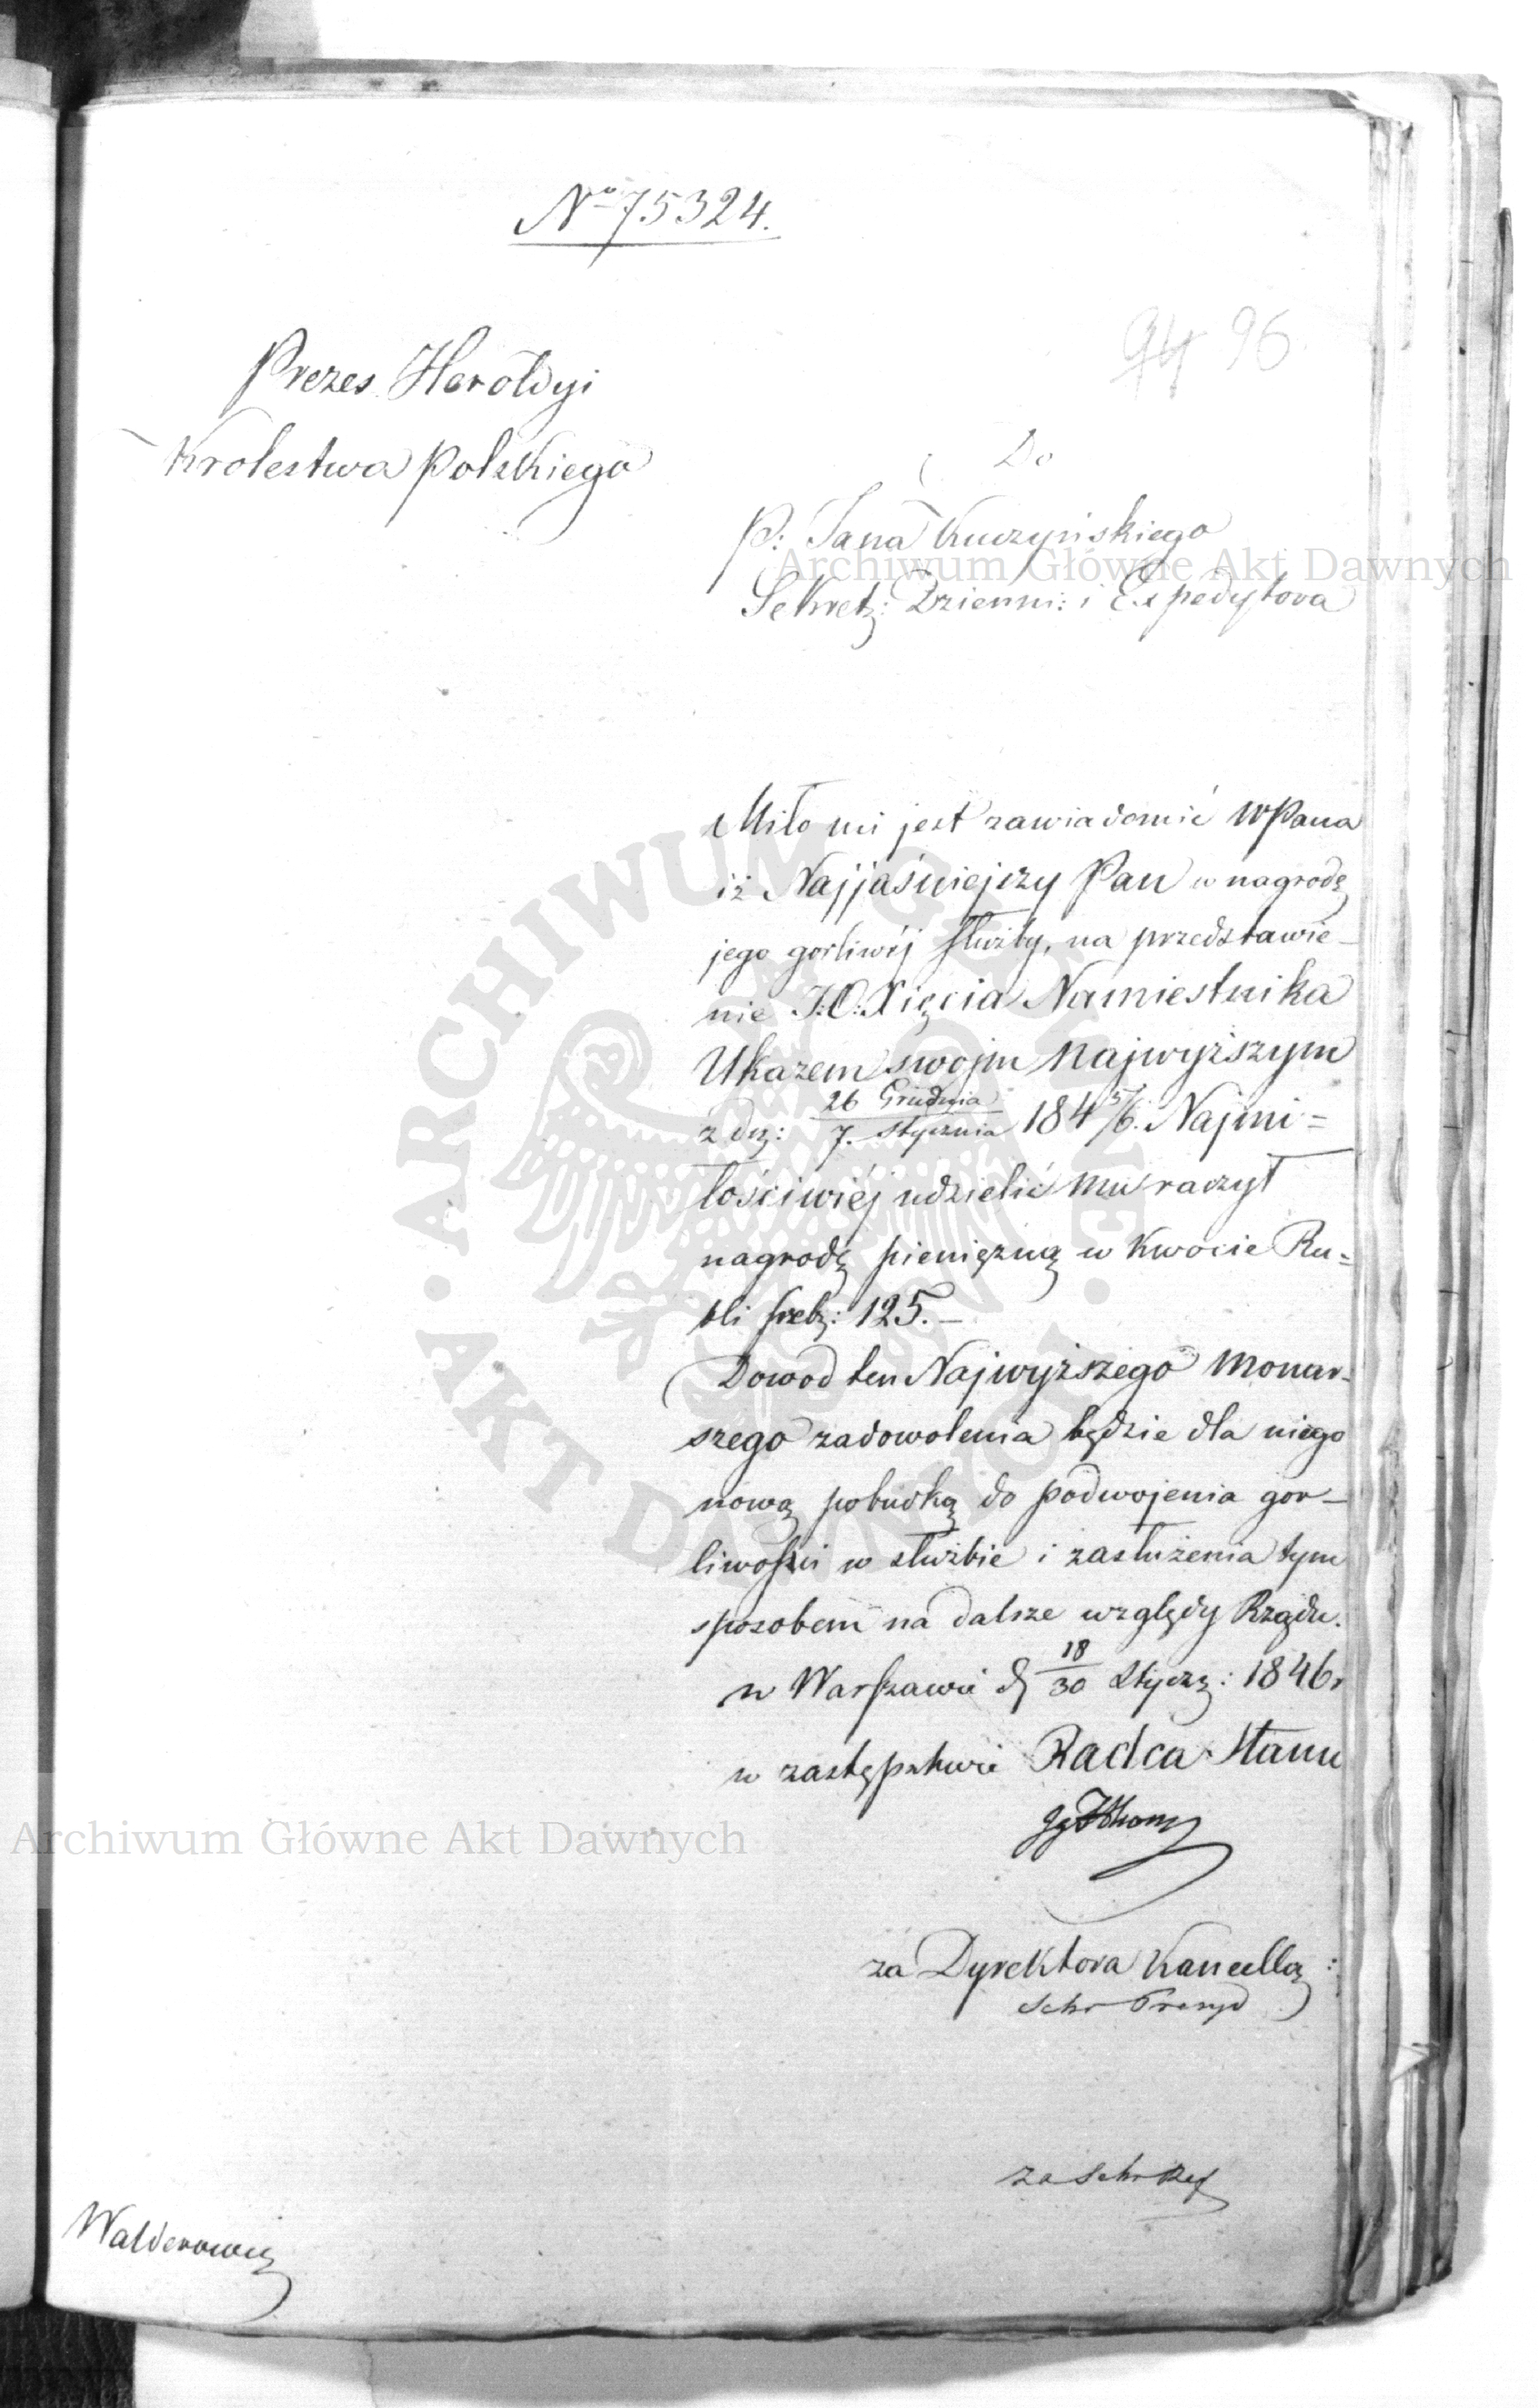 No 75324.
94 96
Prezes Heroldyi
Krolestwa Polskiego
Do
P: Jana Kuczyńskiego
Sekret: Dzienni: i Expedytora
Archiwum Główne Akt Dawnych
Miło mi jest zawiadomić WPana
iż Najjaśniejszy Pan w nagrodę
jego gorliwéj służby, na przedstawie-
nie J:O: Xięcia Namiestnika
Ukazem swojm Najwyższym
z d: 26 Grudnia / 7. Stycznia 1845/6. Najmi=
łościwiéj udzielić mu raczył
nagrodę pieniężną w kwocie Ru=
bli sreb: 125.–
Dowod ten Najwyższego Monar-
szego zadowolenia będzie dla niego
nową pobudką do podwojenia gor-
liwości w służbie i zasłużenia tym
sposobem na dalsze względy Rządu.
w Warszawie d 18/30 Stycz: 1846r
w zastępstwie Radca Stanu
za Dyrektora Kancella:
Sekr Prezyd
za Sekr
Walderowicz
Archiwum Główne Akt Dawnych
ARCHIWUM GŁÓWNE AKT DAWNYCH